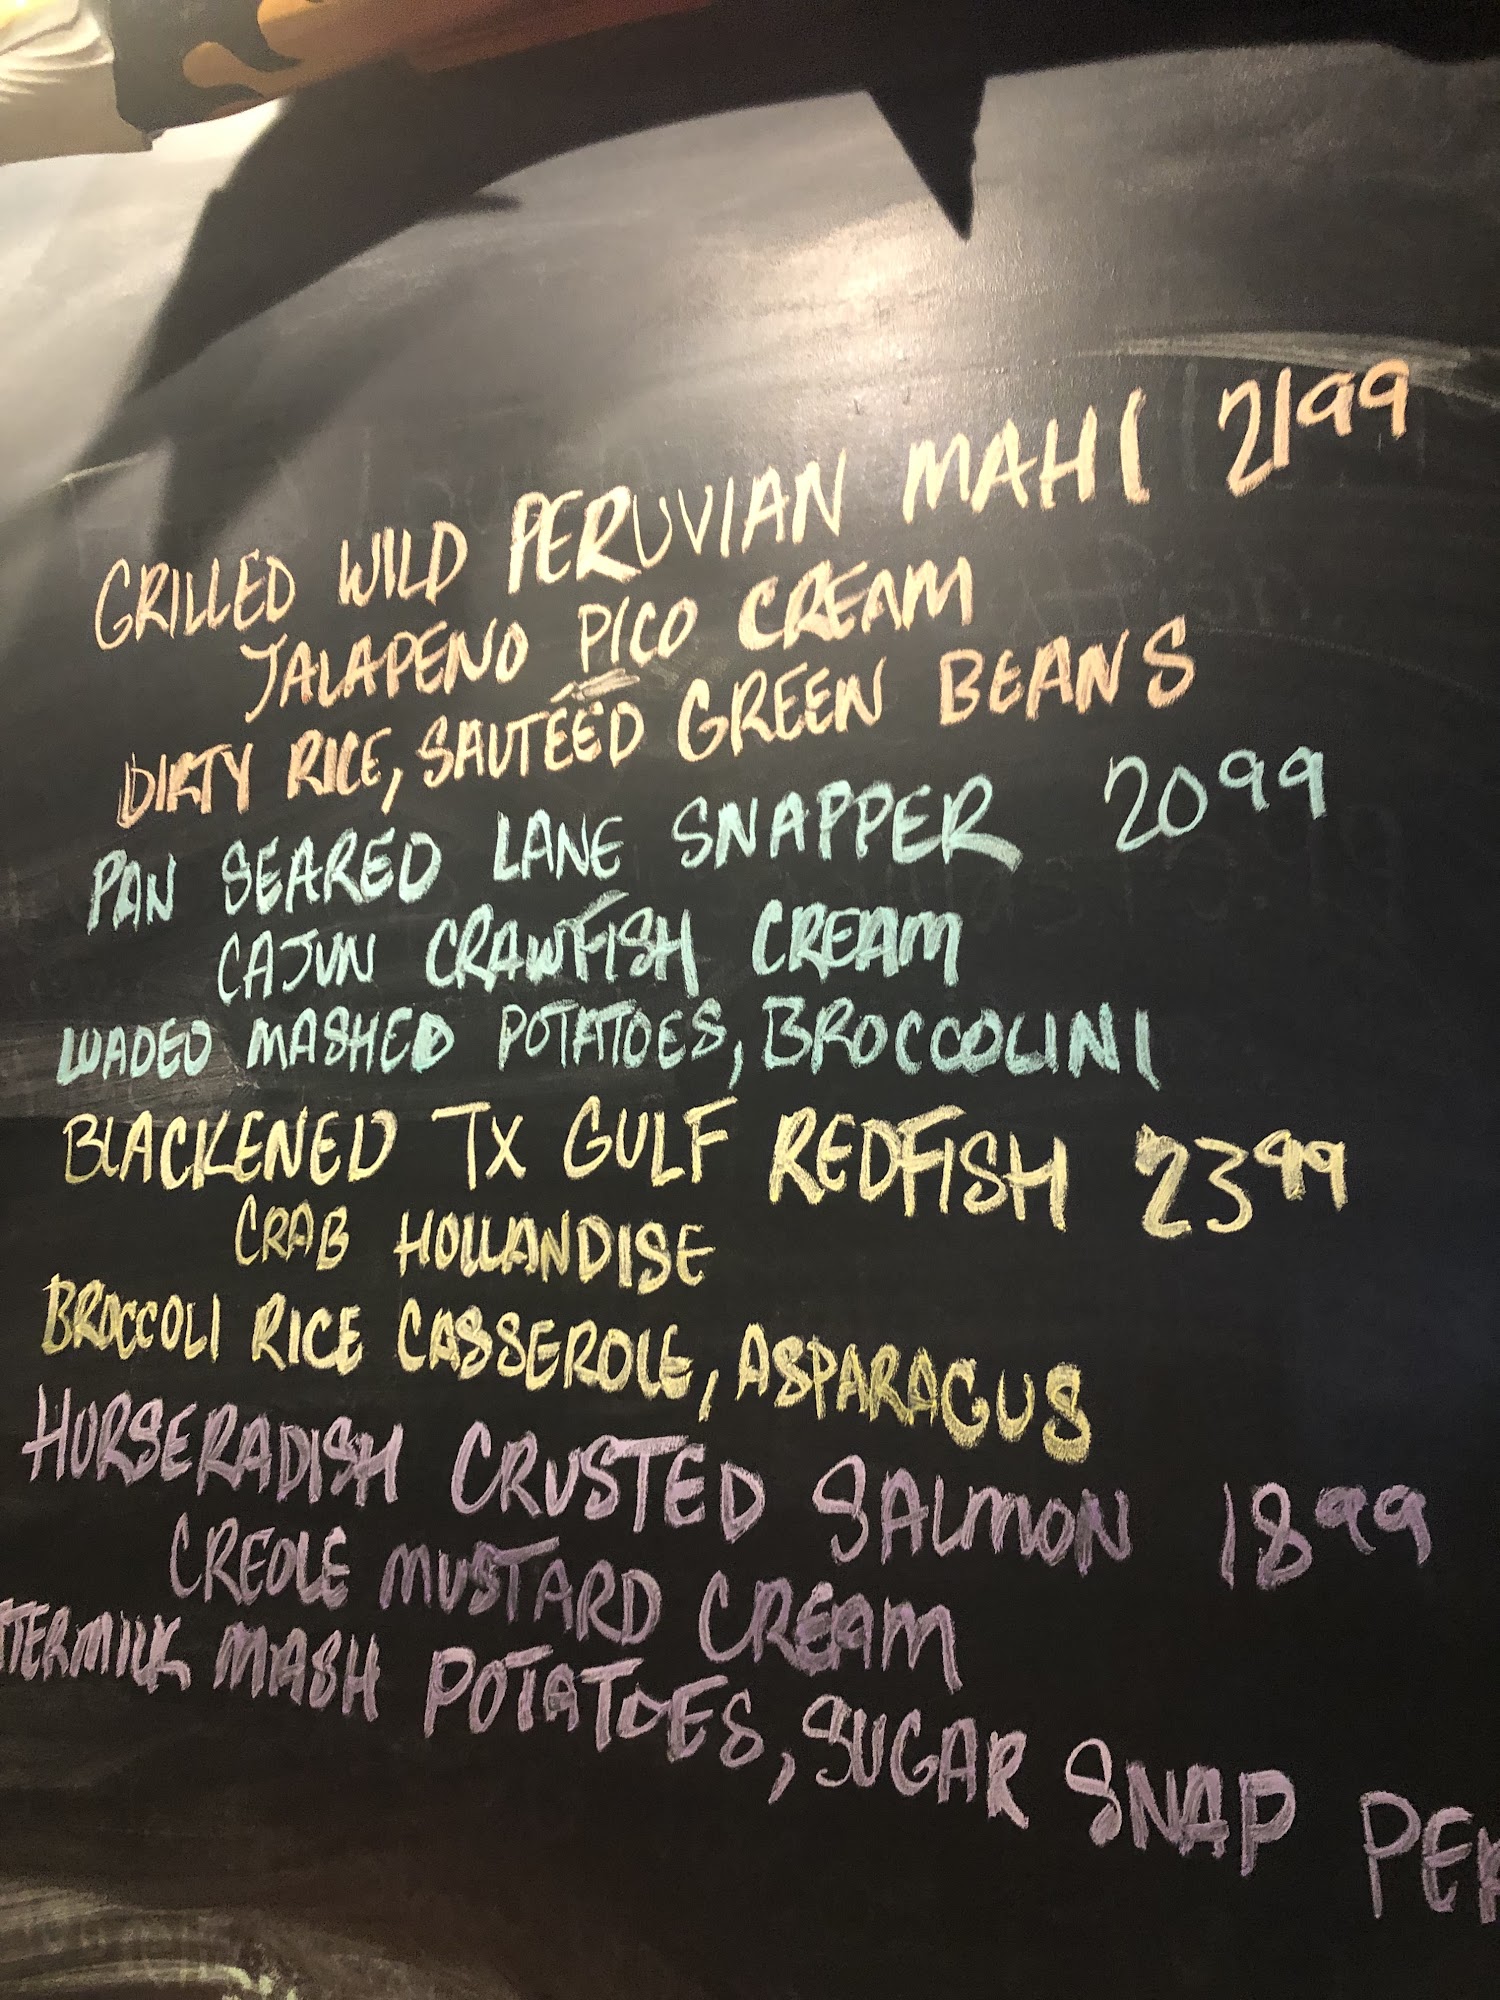 GRILLED WILD PERUVIAN MAHI 2199
JALAPENO PICO CREAM
DIRTY RICE, SAUTÉED GREEN BEANS
PAN SEARED LANE SNAPPER 2099
CAJUN CRAWFISH CREAM
LOADED MASHED POTATOES, BROCCOLINI
BLACKENED TX GULF REDFISH 2399
CRAB HOLLANDISE
BROCCOLI RICE CASSEROLE, ASPARAGUS
HORSERADISH CRUSTED SALMON 1899
CREOLE MUSTARD CREAM
TTERMILK MASH POTATOES, SUGAR SNAP PEA